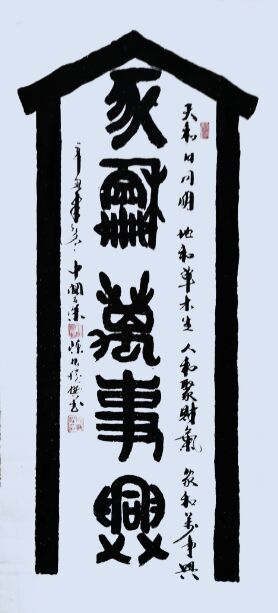 天和日月明 地和草木生 人和聚財氣 家和萬事興
家龢萬事興
辛丑年 中國 書